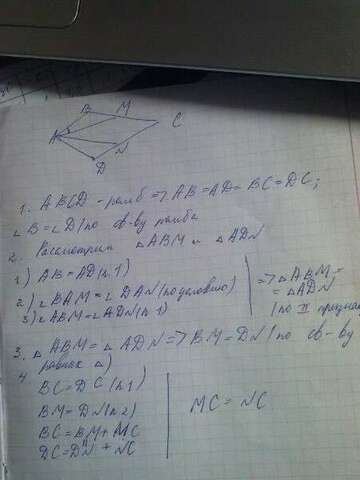 B M
A C
N
D
1. ABCD - ромб => AB = AD = BC = DC;
∠B = ∠D (по св-ву ромба
2. Рассмотрим △ABM и △ADN
1) AB = AD (п. 1)
2) ∠BAM = ∠DAN (по условию)
3) ∠ABM = ∠ADN (п. 1)
=> △ABM =
= △ADN
(по II признак
3. △ABM = △ADN => BM = DN (по св-ву
равных △)
4 BC = DC (п. 1)
BM = DN (п. 2)
BC = BM + MC
DC = DN + NC
MC = NC